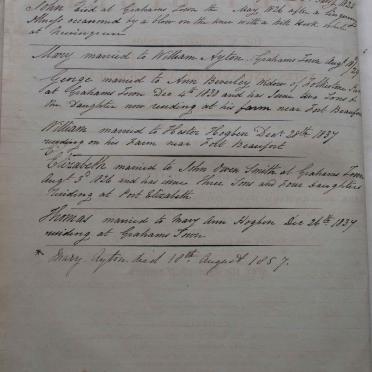 John Died at Grahams Town the May 1826 after a lingering
illness occasioned by a blow on the knee with a bill hook whilst
at
Mary married to William Ayton Grahams Town Augt
George married to Ann Beverley widow of
at Grahams Town Dec 4th 18 and has issue two Sons &
one Daughter now residing at his farm near Fort Beaufort
William married to Hester Hogben Decr 28th 1837
residing on his Farm near Fort Beaufort
Elizabeth married to John Owen Smith at Grahams Town
Augt 3d 18 and has issue Three Sons and Four daughters
residing at Port Elizabeth
Thomas married to Mary Ann Hogben Dec 26th 1837
residing at Grahams Town
* Mary Ayton died 18th August 1857.